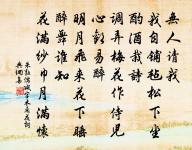 無人請我
我自鋪氈松下坐
酌酒裁詩
調弄梅花作侍兒
心歡易醉
明月飛來花下睡
醉舞誰知
花滿紗巾月滿懷
朱敦儒減字木蘭花詞